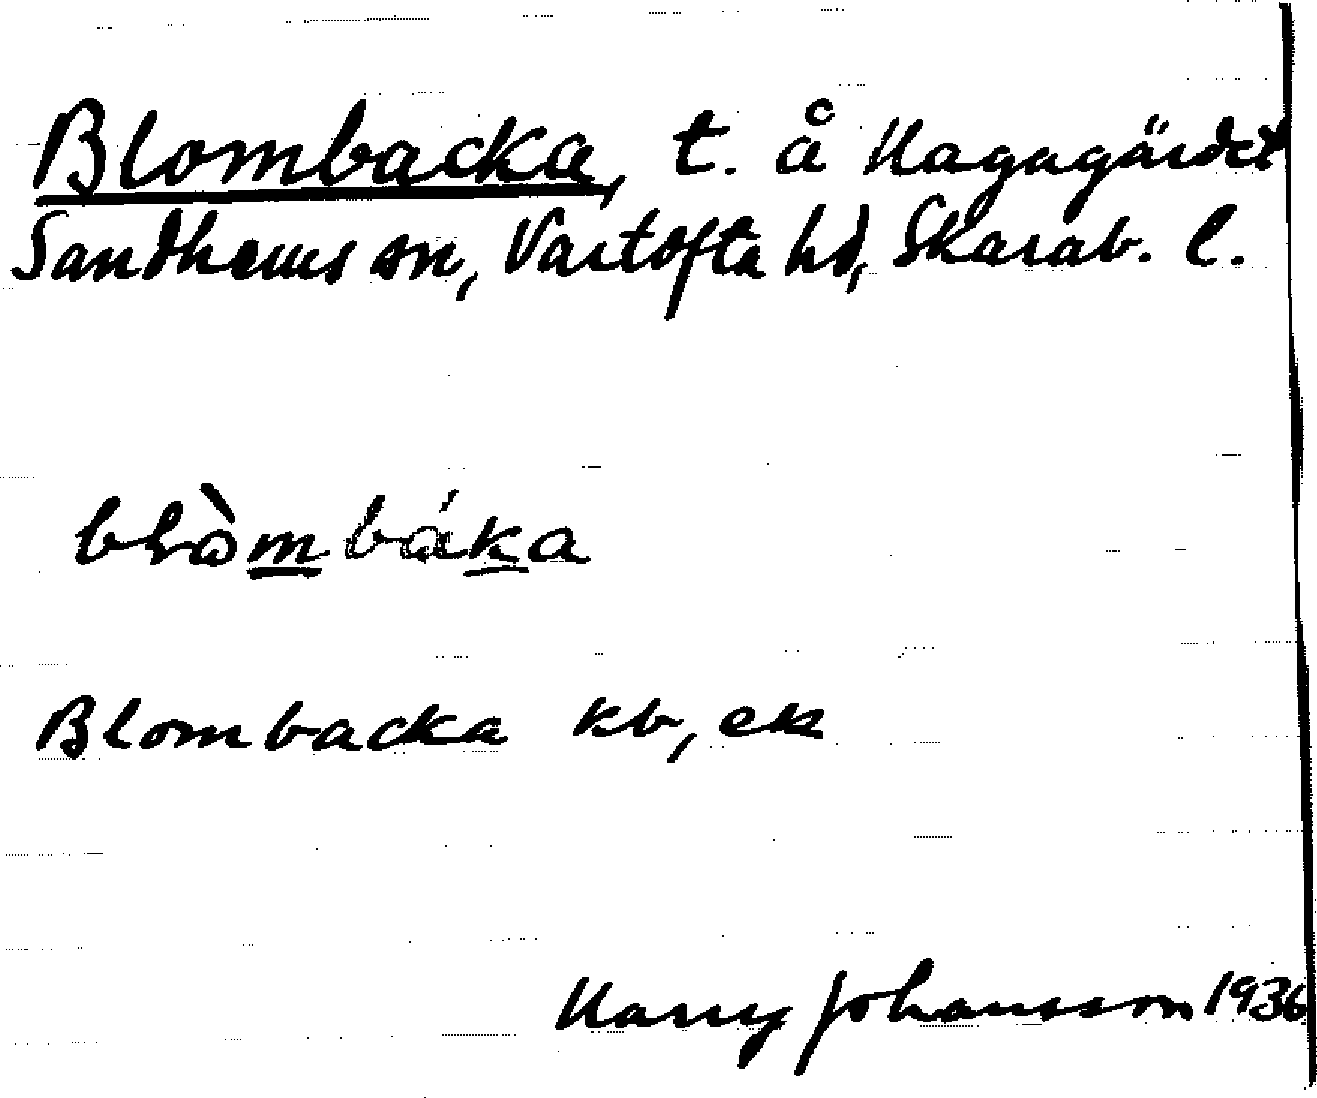 Blombacka, t. å Hagagärdet
Sandhems sn, Vartofta hd, Skarab. l.
blòmbáka
Blombacka kb, ek
Harry Johansson 1936